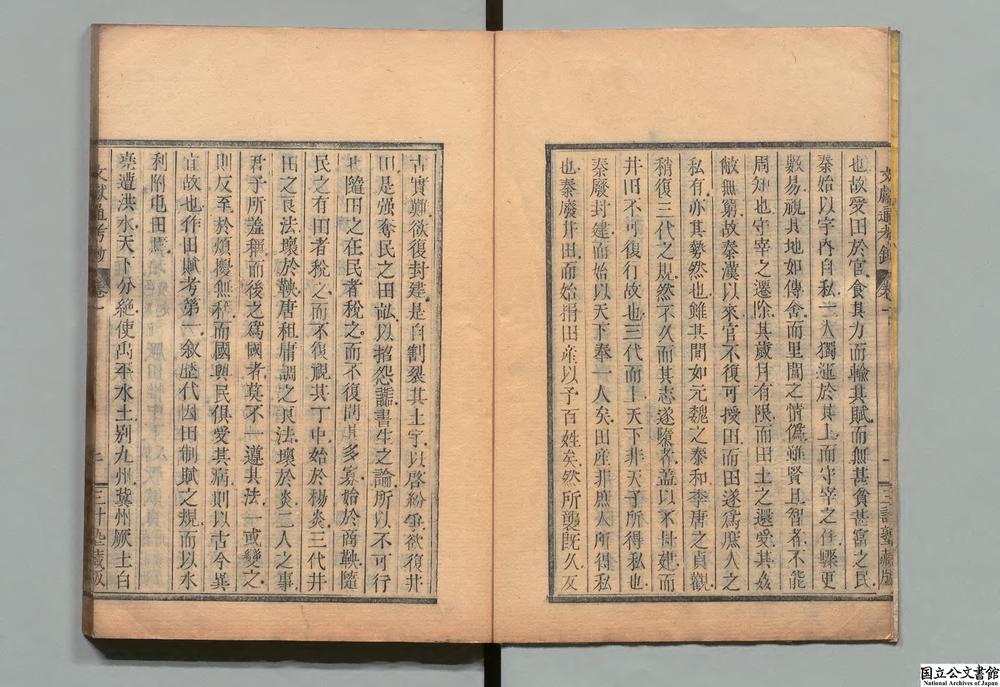 也故受田於官食其力而輸其賦而無甚貧甚富之民
秦始以宇內自私一人獨運於其上而守宰之任驟更
數易視其地如傳舍而里閭之情僞雖賢且智者不能
周知也守宰之遷除其歲月有限而田土之還受其姦
敝無窮故秦漢以來官不復可授田而田遂爲庶人之
私有亦其勢然也雖其間如元魏之泰和李唐之貞觀
稍復三代之規然不久而其志遂隳者蓋以不封建而
井田不可復行故也三代而上天下非天子所得私也
秦廢封建而始以天下奉一人矣田產非庶人所得私
也秦廢井田而始捐田產以予百姓矣然所襲旣久反
古實難欲復封建是自割裂其土宇以啓紛爭欲復井
田是强奪民之田畝以招怨讟書生之論所以不可行
也隨田之在民者稅之而不復問其多寡始於商鞅隨
民之有田者稅之而不復視其丁中始於楊炎三代井
田之良法壞於鞅唐租庸調之良法壞於炎二人之事
君子所羞稱而後之爲國者莫不一遵其法一或變之
則反至於煩擾無稽而國與民俱受其病則以古今異
宜故也作田賦考第一敘歷代因田制賦之規而以水
利附屯田
堯遭洪水天下分絶使禹平水土别九州冀州厥土白
文獻通考
卷一
藏版
国立公文書館
National Archives of Japan